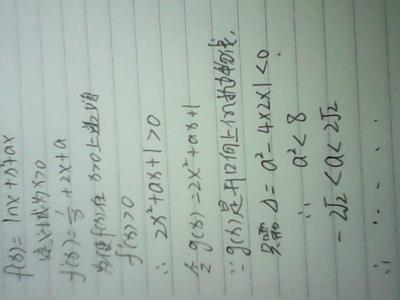 f(x)= lnx+x²+ax
定义域为x>0
f'(x)=1/x+2x+a
为使f(x)在x>0上递增
f'(x)>0
∴ 2x²+ax+1>0
令g(x)=2x²+ax+1
∵g(x)是开口向上的抛物线,
只需△=a²-4×2×1<0
∴ a²<8
-2√2<a<2√2